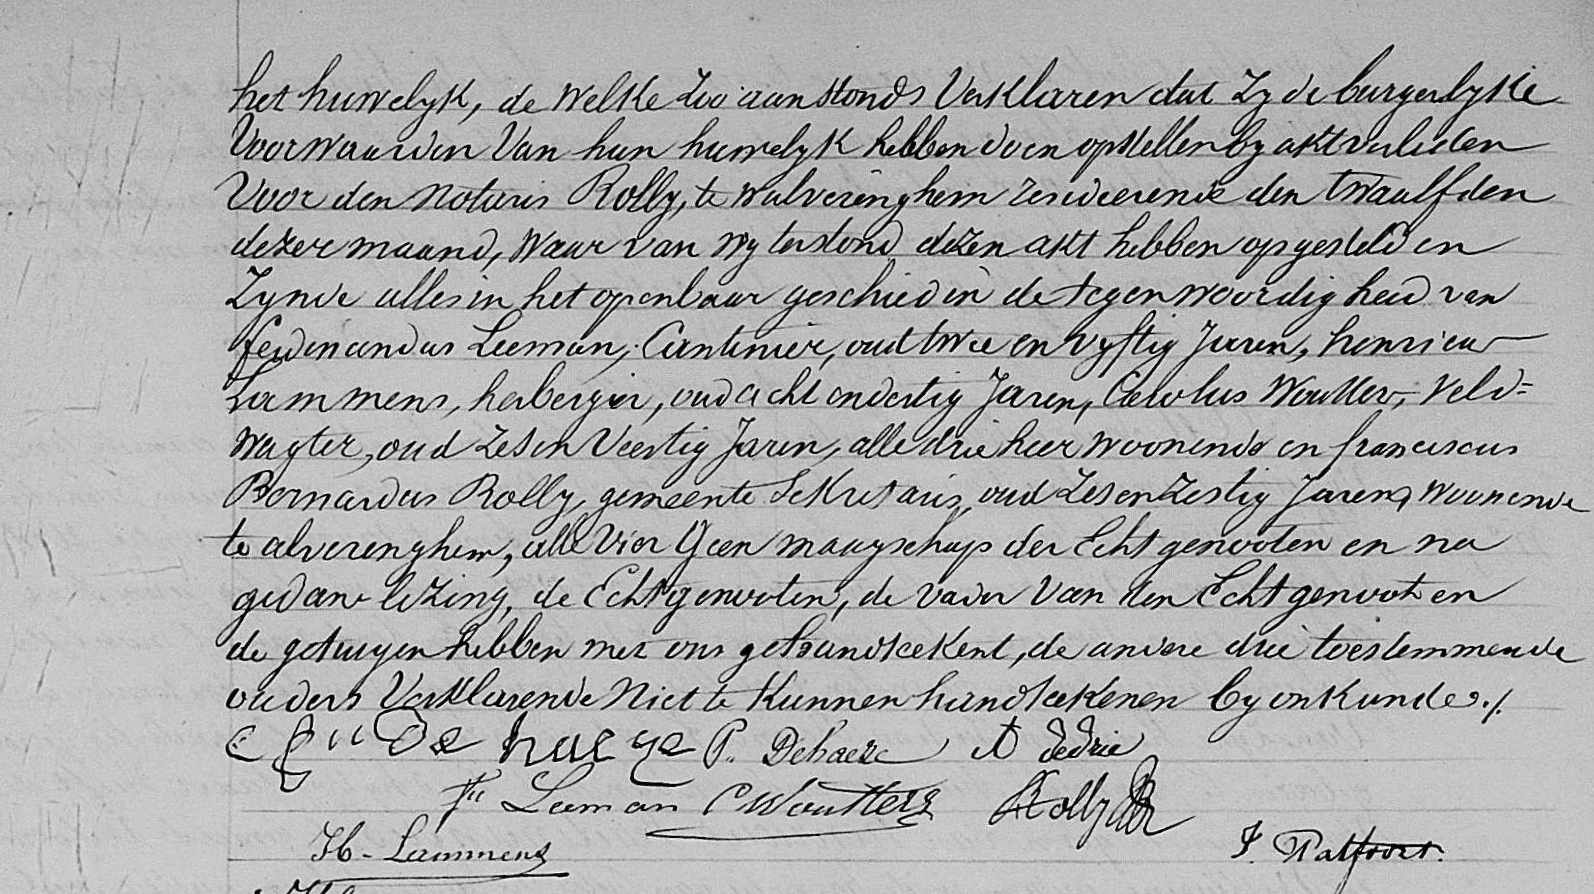 het huwelyk, de welke zoo aanstonds verklaren dat zy de burgerlyke
voorwaarden van hun huwelyk hebben doen opstellen by akt verleden
voor den notaris Rolly, te wulveringhem resideerende den twaalfden
dezer maand, waar van wy terstond dezen akt hebben opgesteld en
zynde alles in het openbaar geschied in de tegenwoordigheid van
ferdinandus Leeman, Cantinier, oud twee en vyftig Jaren, henricus
Lammens, herbergier, oud acht en dertig Jaren, Carolus Woutters, veld=
wagter, oud zes en veertig Jaren, alle drie hier woonende en franciscus
Bernardus Rolly, gemeente sekretaris, oud zes en zestig Jaren, woonende
te alveringhem, alle vier Geen maagschap der Echtgenooten en na
gedane lezing, de Echtgenooten, de vader van den Echtgenoot en
de getuigen hebben met ons gehandteekent, de andere drie toestemmende
ouders verklarende Niet te kunnen handteekenen by onkunde ./.
De haeye P. Dehaeze A dedrie
Fs Leeman C Woutters Rolly
H. Lammens